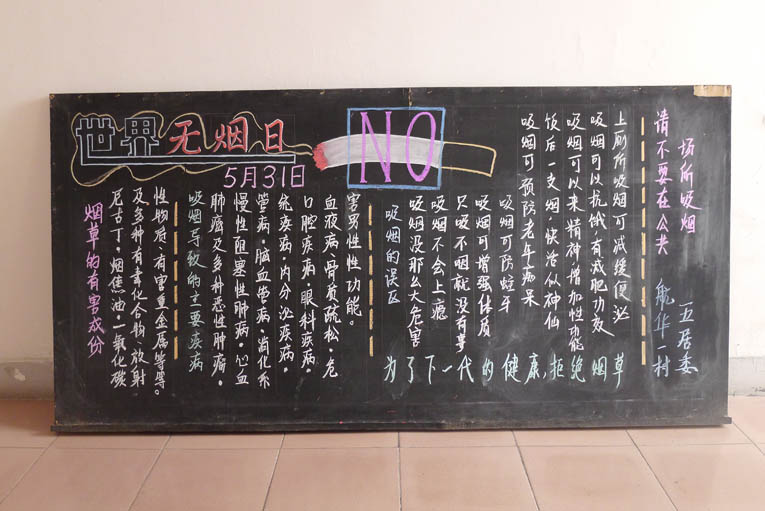 世界无烟日
5月31日
NO
烟草的有害成份
尼古丁、烟焦油、一氧化碳
及多种有毒化合物、放射
性物质、有害重金属等等。
吸烟导致的主要疾病
肺癌及多种恶性肿瘤。
慢性阻塞性肺病、心血
管病、脑血管病、消化系
统疾病、内分泌疾病、
口腔疾病、眼科疾病、
血液病、骨质疏松、危
害男性性功能。
吸烟的误区
吸烟没那么大危害
吸烟不会上瘾
只吸不咽就没有事
吸烟可增强体质
吸烟可防蛀牙
吸烟可预防老年痴呆
饭后一支烟快活似神仙
吸烟可以来精神增加性功能
吸烟可以抗饿,有减肥功及
上厕所吸烟可减缓便泌
为了下一代的健康,拒绝烟草
请不要在公共
场所吸烟
航华一村
一五居委